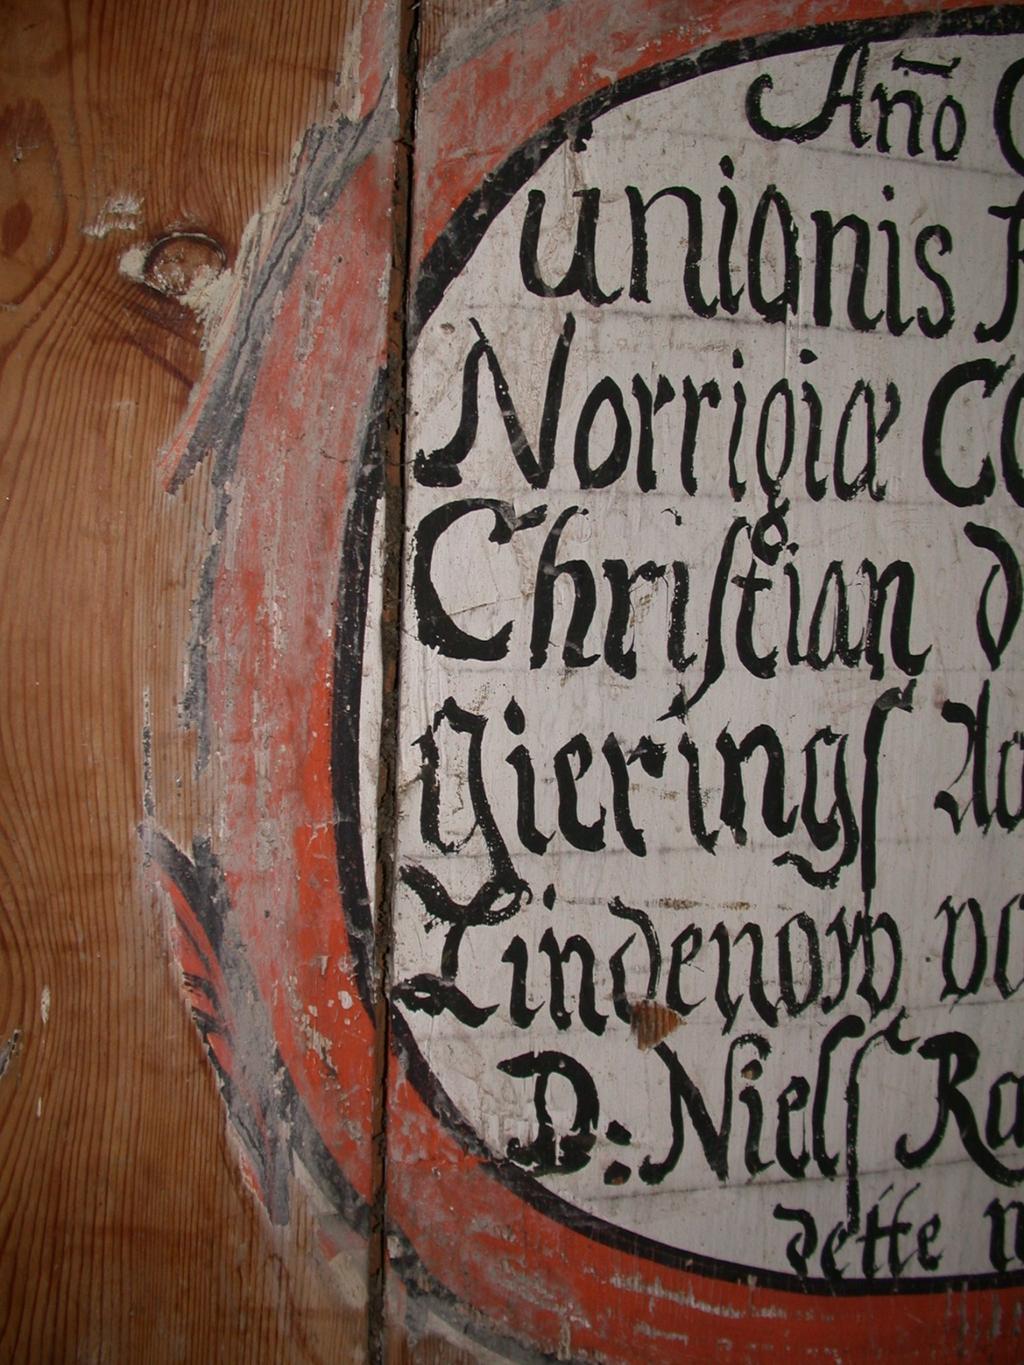 Año
unionis
Norrigiæ
Christian
gierings
Lindenow
D: Niels
dette